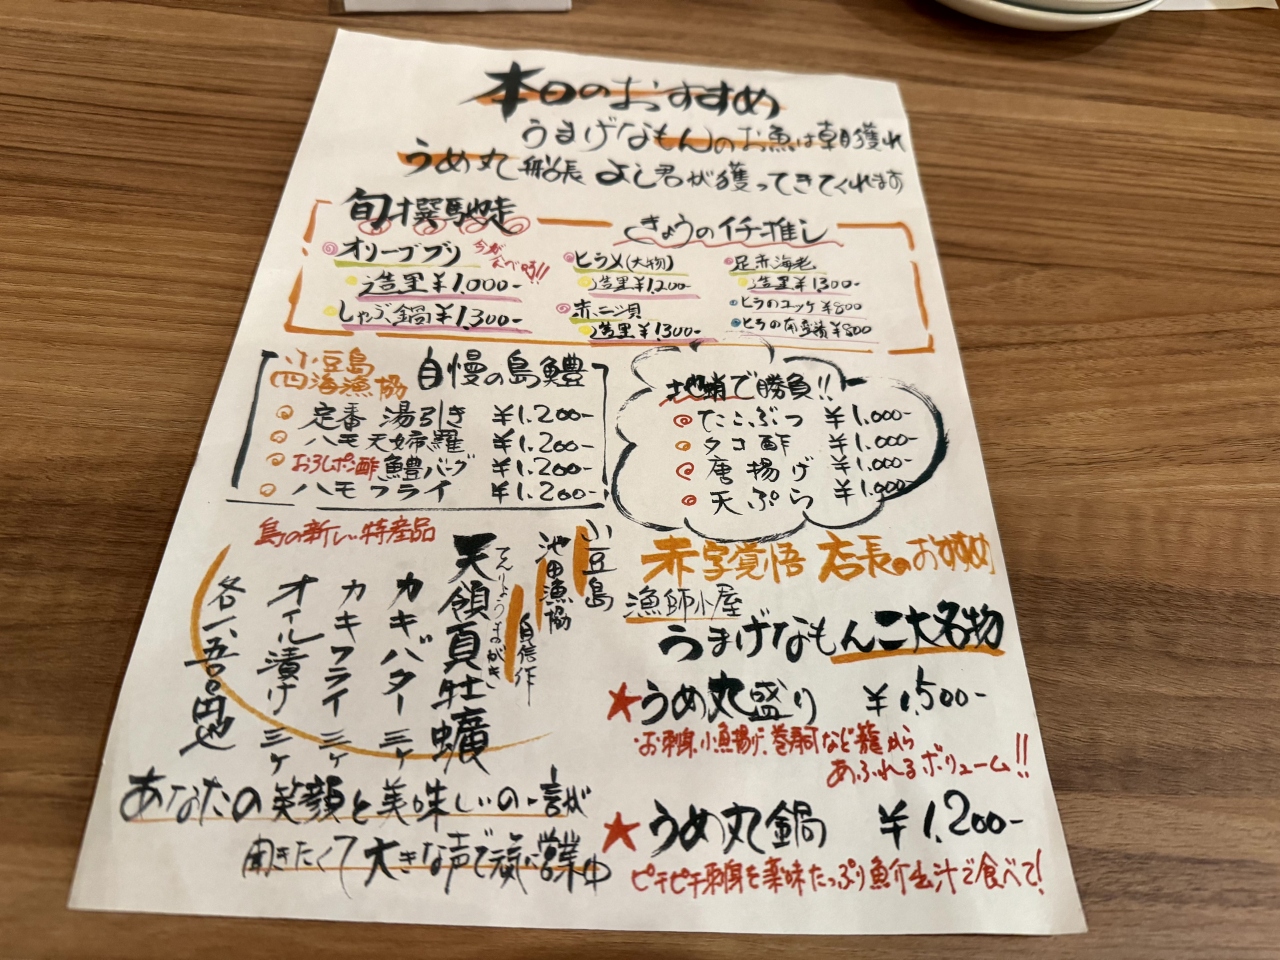 本日のおすすめ
うまげなもんのお魚は朝獲れ
うめ丸船長 よし君が獲ってきてくれます
旬撰馳走
きょうのイチ推し
オリーブブリ 今が食べ時!!
造里¥1,000-
しゃぶ鍋¥1,300-
ヒラメ(大物)
造里¥1,200-
赤ニシ貝
造里¥1,300-
足赤海老
造里¥1,300-
ヒラのユッケ¥800
ヒラの¥800
小豆島
四海漁協
自慢の島鱧
定番 湯引き ¥1,200-
ハモ天婦羅 ¥1,200-
おろしポン酢 鱧バーグ ¥1,200-
ハモフライ ¥1,200-
地蛸で勝負!!
たこぶつ ¥1,000-
タコ酢 ¥1,000-
唐揚げ ¥1,000-
天ぷら ¥1,000-
島の新しい特産品
小豆島
池田漁協
自信作
てんりょうまがき
天領真牡蠣
カキバター 三ヶ
カキフライ 三ヶ
オイル漬け 三ヶ
各一、五〇〇円也
あなたの笑顔と美味しいの一言が
聞きたくて大きな声で元気に営業中
赤字覚悟 店長のおすすめ
漁師小屋
うまげなもん二大名物
★うめ丸盛り ¥1,500-
お刺身、小魚揚げ、巻寿司など籠から
あふれるボリューム!!
★うめ丸鍋 ¥1,200-
ピチピチ刺身を薬味たっぷり魚介出汁で食べて!